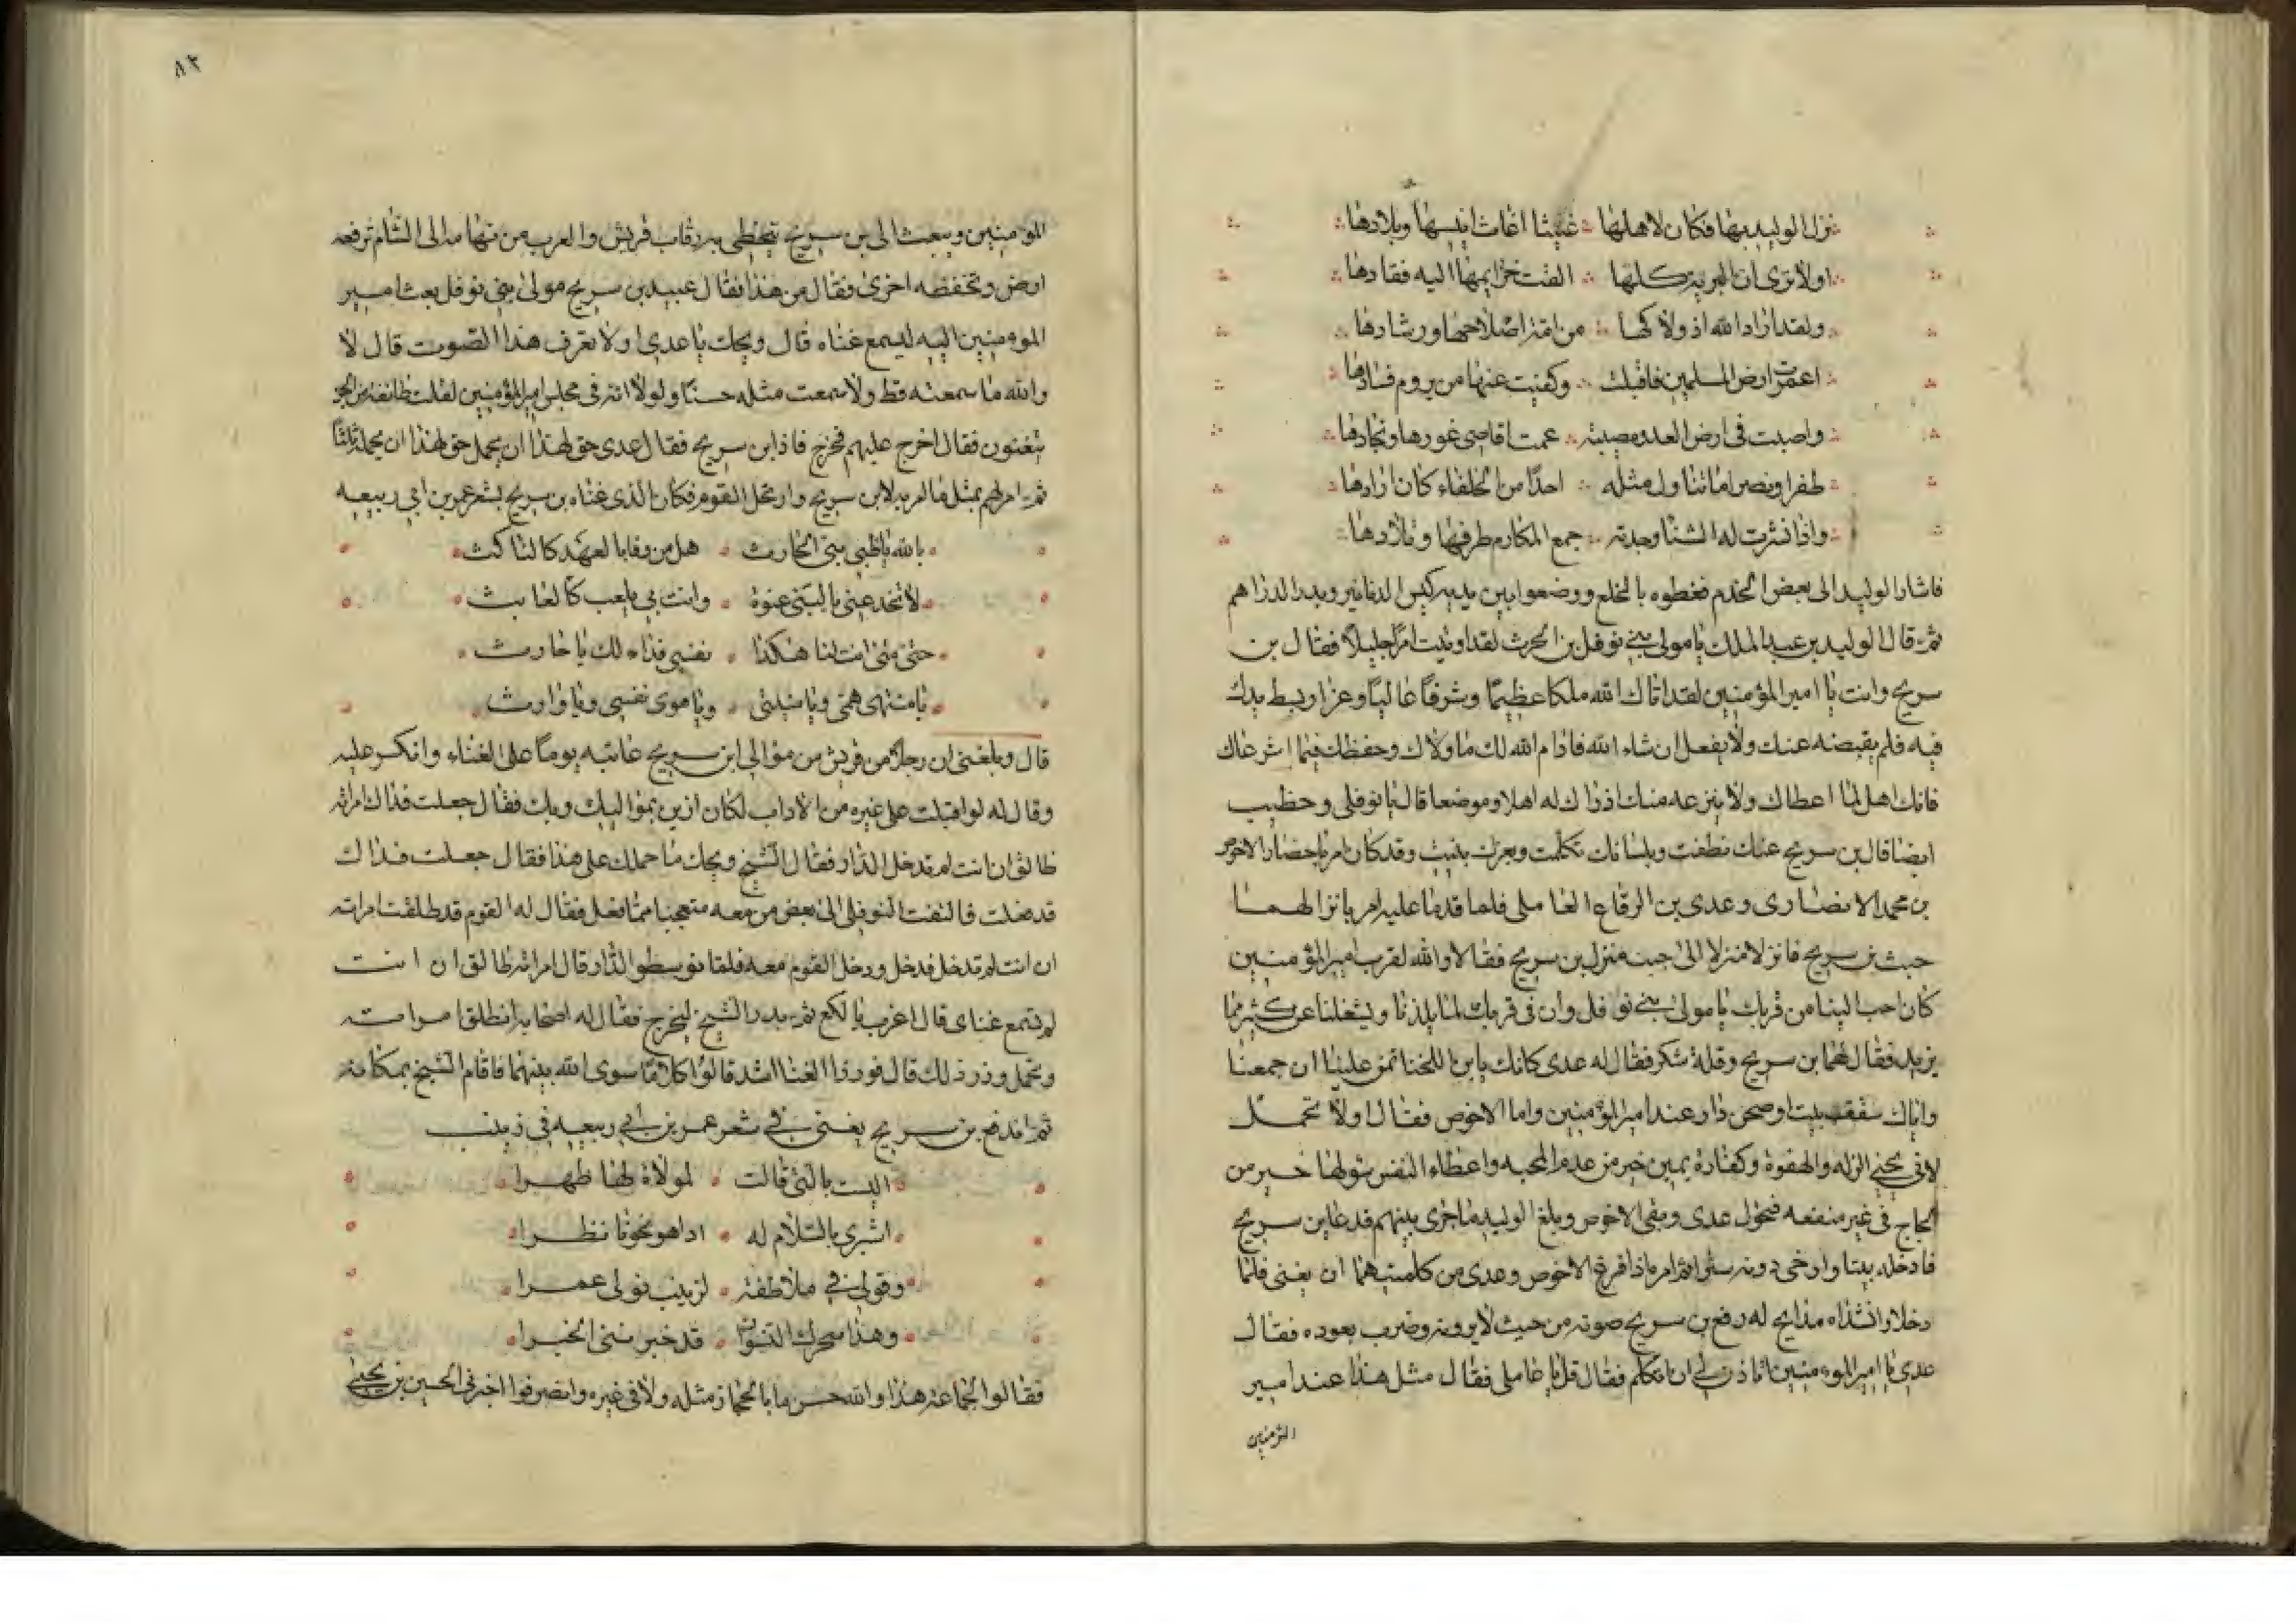 نزل الوليد بها فكان لاهلها غيثا اغاث انيسها وبلادها
اولا ترى ان البرية كلها القت خزايمها اليه فقادها
ولقد اراد الله اذ ولاكها من امة اصلاحها ورشادها
اعمرت ارض المسلمين فاقبلت وكففت عنها من يروم فسادها
واصبت في ارض العدو مصيبة عمت اقاصي غورها ونجادها
ظفرا ونصرا ما تناول مثله احدا من الخلفاء كان ارادها
واذا نشرت له الثنا وجدته جمع المكارم طرفها وتلادها
فاشار الوليد الى بعض الخدم فغطوه بالخلع ووضعوا بين يديه كيس الدنانير وبدر الدراهم
ثم قال الوليد بن عبد الملك يا مولى بني نوفل بن الحرث لقد اوتيت امرا جليلا فقال بن
سريج وانت يا امير المؤمنين لقد اتاك الله ملكا عظيما وشرفا عاليا وعزا وبسط يدك
فيه فلم يقبضه عنك ولا يفعل ان شاء الله فادام الله لك ما ولاك وحفظك فيما استرعاك
فانك اهل لما اعطاك ولا ينزعه منك اذ راك له اهلا وموضعا قال يا نوفلي وخطيب
ايضا قال بن سريج عنك نطقت وبلسانك تكلمت وبعزك بنيت وقد كان امر باحضار الاحوص
بن محمد الانصاري وعدي بن الرقاع العاملي فلما قدما عليه امر بانزالهما
حيث بن سريج فانزلا منزلا الى جنب منزل بن سريج فقالا والله لقرب امير المؤمنين
كان احب الينا من قربك يا مولى بني نوفل وان في قربك لما يلذنا ويشغلنا عن كثير مما
نريد فقال لهما بن سريج وقلة شكر فقال له عدي كانك يا بن اللخنا تمن علينا ان جمعنا
واياك سقف بيت او صحن دار عند امير المؤمنين واما الاحوص فقال اولا تحمل
لابي يحيى الزله والهفوة وكفارة يمين خير من عدم المحبه واعطاء النفس سولها خير من
لجاج في غير منفعه فتحول عدي وبقي الاحوص وبلغ الوليد ما جرى بينهم فدعا بن سريج
فادخله بيتا وارخى دونه سترا ثم امره اذا فرغ الاحوص وعدي من كلمتيهما ان يغني فلما
دخلا وانشداه مدايح له رفع بن سريج صوته من حيث لا يرونه وضرب بعوده فقال
عدي يا امير المومنين اتاذن لي ان اتكلم فقال قل يا عاملي فقال مثل هذا عند امير
المؤمنين
٨٢
المومنين ويبعث الى بن سريج يتخطى به رقاب قريش والعرب من تهامه الى الشام ترفعه
ارض وتخفضه اخرى فقال من هذا فقال عبيد بن سريج مولى بني نوفل بعث امير
المومنين اليه ليسمع غناه قال ويحك يا عدي اولا تعرف هذا الصوت قال لا
والله ما سمعته قط ولا سمعت مثله حسنا ولولا انه في مجلس امير المؤمنين لقلت طائفة من الجن
يتغنون فقال اخرج عليهم فخرج فاذا بن سريج فقال عدي حق لهذا ان يحمل حق لهذا ان يحمل ثلثا
ثم امر لهم بمثل ما امر به لابن سريج وارتحل القوم فكان الذي غناه بن سريج بشعر عمر بن ابي ربيعه
بالله يا ظبي بني الحارث هل من وفا بالعهد كالناكث
لا تخدعيني بالمنى عنوة وانت بي تلعب كالعابث
حتى متى انت لنا هكذا نفسي فداء لك يا حارث
يا منتهى همي ويا منيتي ويا هوى نفسي ويا وارث
قال وبلغني ان رجلا من قريش من موالي ابن سريج عاتبه يوما على الغناء وانكر عليه
وقال له لو اقبلت على غيره من الاداب لكان ازين بمواليك وبك فقال جعلت فداك امراته
طالق ان انت لم تدخل الدار فقال الشيخ ويحك ما حملك على هذا فقال جعلت فداك
قد فعلت فالتفت النوفلي الى بعض من معه متعجبا مما فعل فقال له القوم قد طلقت امراته
ان انت لم تدخل فدخل ودخل القوم معه فلما توسطوا الدار قال امراته طالق ان انت
لم تسمع غناي قال اعزب يا لكع ثم بدر الشيخ ليخرج فقال له اصحابه اتطلق امراته
وتحمل وزر ذلك قال فوزر الغنا اشد قالوا كلا ما سوى الله بينهما فاقام الشيخ بمكانه
ثم اندفع بن سريج يغني في شعر عمر بن ابي ربيعه في زينب
اليست بالتي قالت لمولاة لها ظهرا
اشيري بالسلام له اذا هو نحونا نظرا
وقولي في ملاطفة لزينب نولي عمرا
وهذا سحرك النسوان قد خبرنني الخبرا
فقالوا الجماعة هذا والله حسن ما بالحجاز مثله ولا في غيره وانصرفوا اخبرني الحسين بن يحيى